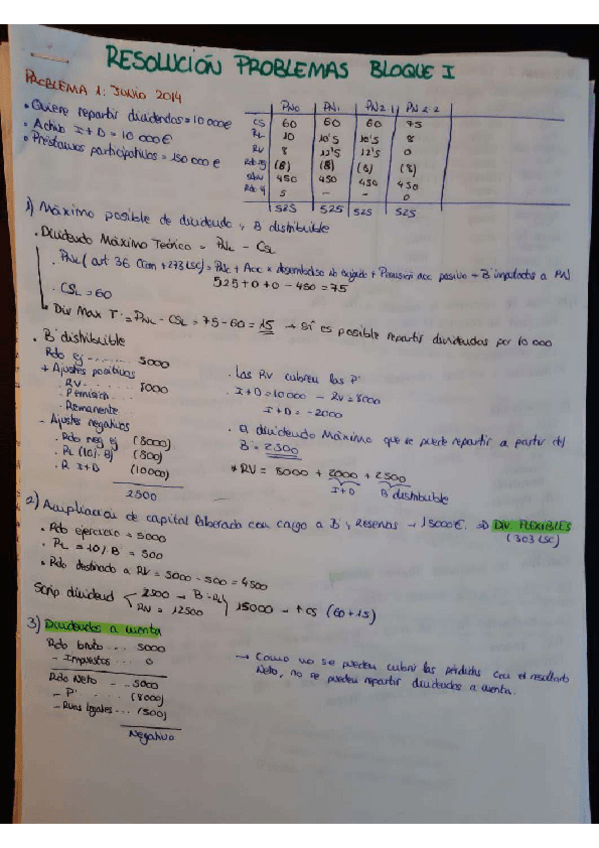 RESOLUCIÓN PROBLEMAS BLOQUE I
PROBLEMA 1: JUNIO 2014
• Quiere repartir dividendos = 10 000€
• Activo I+D = 10 000€
• Préstamos participativos = 150 000€
PN0 PN1 PN2.1 PN2.2
CS 60 60 60 75
RL 10 10'5 10'5 8
RV 8 12'5 12'5 0
(8) (8) (8) (8)
450 450 450 450
5 - - 0
525 525 525 525
1) Máximo posible de dividendo y B distribuible
• Dividendo Máximo Teórico = PNL - CSL
• PNL (art 36 Ccom + 273 LSC) = PNC + Acc x desembolso no exigido + Prima acc pasivo - B imputados a PN
525 + 0 + 0 - 450 = 75
• CSL = 60
Div Max T = PNL - CSL = 75 - 60 = 15 → Sí es posible repartir dividendos por 10 000
• Bº distribuible
Rdo ej ........ 5000
+ Ajustes positivos
. RV ........ 8000
. Remanente ...
- Ajustes negativos
. Rdo neg ej (8000)
. RL (10% B) (800)
. R I+D (10000)
2500
• Las RV cubren las Pº
• I+D = 10000 - RV = 8000
I+D = -2000
• El dividendo Máximo que se puede repartir a partir del
B = 2500
* RV = 8000 + 2000 + 2500
I+D B distribuible
2) Ampliación de capital liberado con cargo a B y Reservas → 15000€. ⇒ DIV FLEXIBLES
(303 LSC)
• Rdo ejercicio = 5000
• RL = 10% B = 500
• Rdo destinado a RV = 5000 - 500 = 4500
Scrip dividend 2500 → B - RL
RV = 12500
15000 → ↑CS (60+15)
3) Dividendos a cuenta
Rdo bruto ... 5000
- Impuestos ... 0
Rdo Neto ... 5000
- Pº ... (8000)
- Rvas legales ... (500)
Negativo
→ Como no se pueden cubrir las pérdidas con el resultado
Neto, no se pueden repartir dividendos a cuenta.